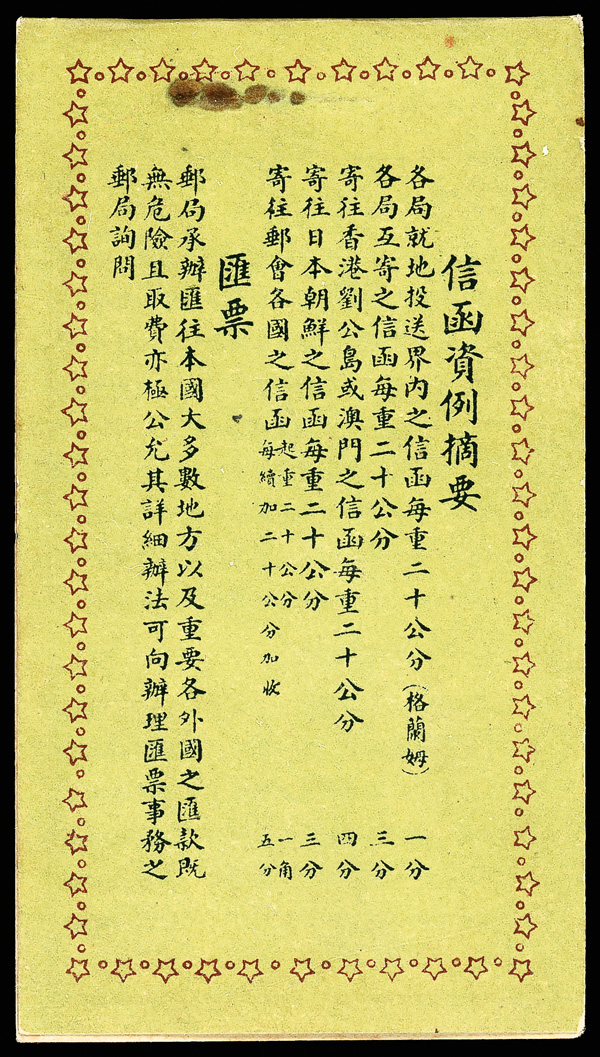 信函資例摘要
各局就地投送界內之信函每重二十公分(格蘭姆) 一分
各局互寄之信函每重二十公分 三分
寄往香港劉公島或澳門之信函每重二十公分 四分
寄往日本朝鮮之信函每重二十公分 三分
寄往郵會各國之信函起重二十公分 一角
每續加二十公分加收 五分
匯票
郵局承辦匯往本國大多數地方以及重要各外國之匯款既
無危險且取費亦極公允其詳細辦法可向辦理匯票事務之
郵局詢問